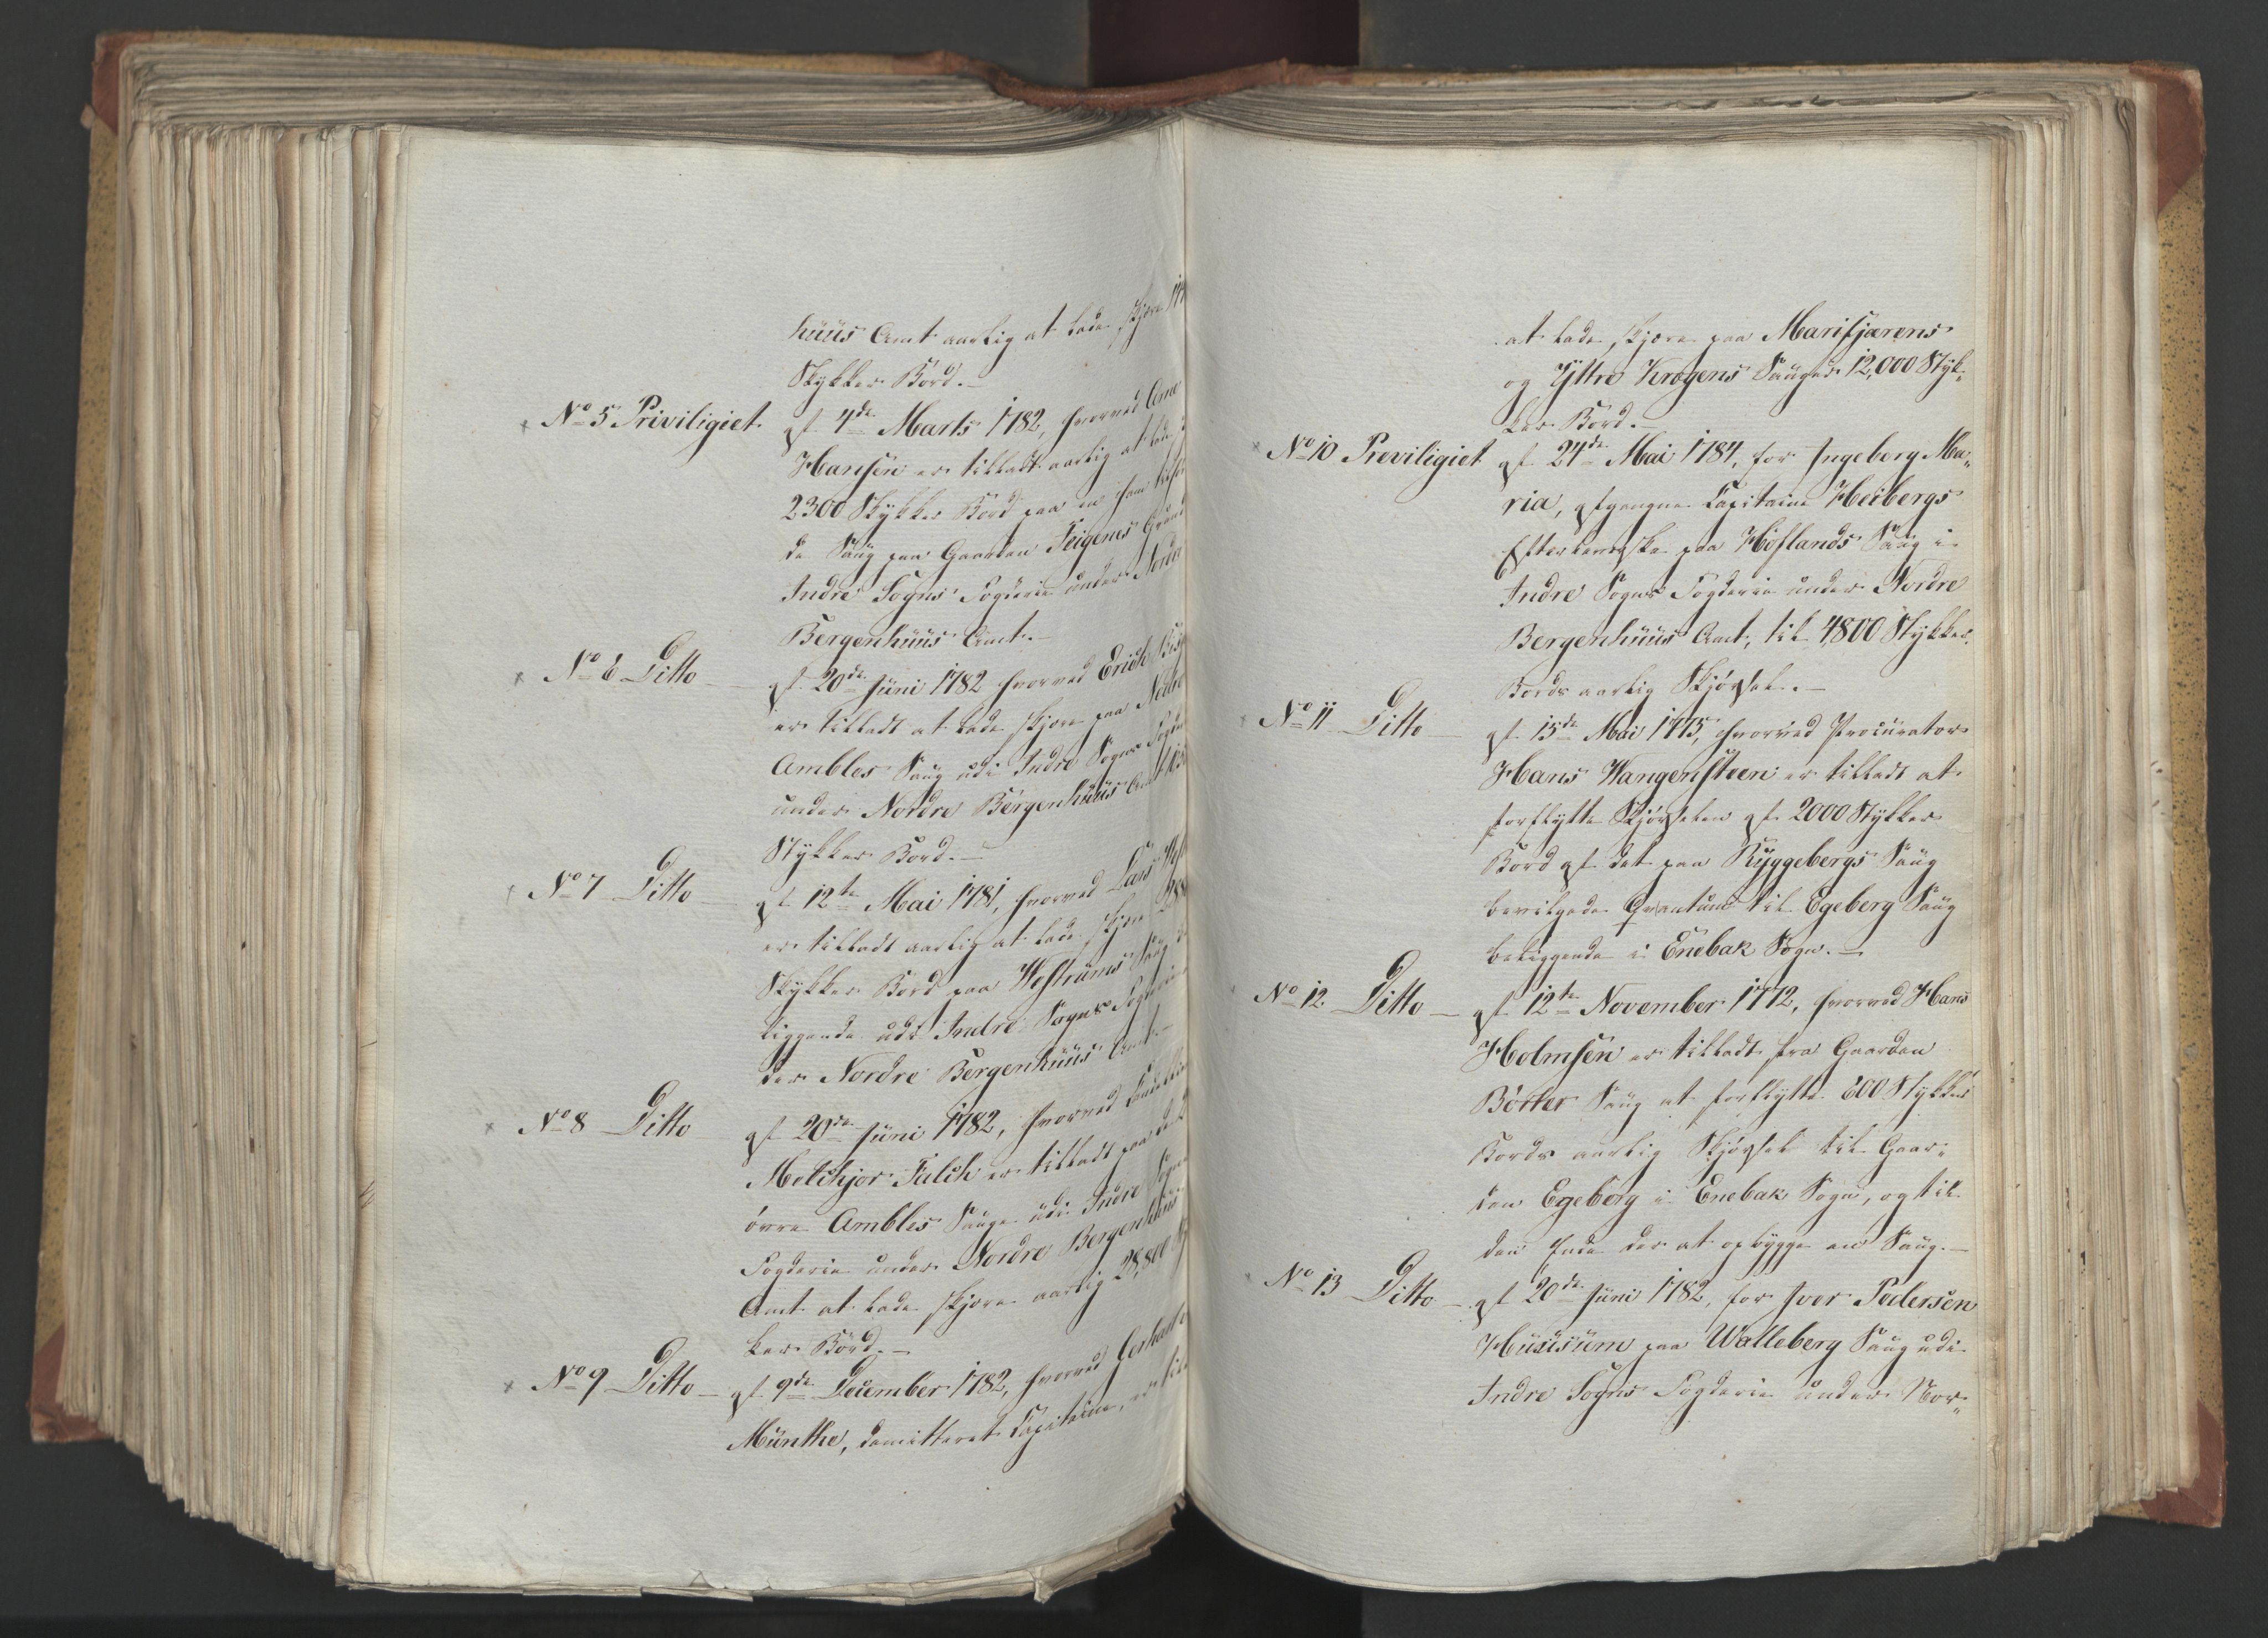 huüs Amt aarlig at lade skjære
Stykker Bord.-
No 5 Priviligiet af 4de Marts 1782, hvorved
Hansen er tilladt aarlig at lade
2300 Stykker Bord paa en ham
de Saug paa Gaarden Teigenes Grund
Indre Sogns Fogderie under Nordre
Bergenhuüs Amt.-
No 6 Ditto - af 20de Juni 1782 hvorved Erich
er tilladt at lade skjære paa Nedre
Ambles Saug udi Indre Sogns
under Nordre Bergenhuüs Amt
Stykker Bord.-
No 7 Ditto - af 12te Mai 1781, hvorved Lars
er tilladt aarlig at lade skjære
Stykker Bord paa Westrums Saug
liggende udi Indre Sogns Fogderie
der Nordre Bergenhuüs Amt.-
No 8 Ditto af 20de Juni 1782, hvorved
Melchjor Falch er tilladt paa
övre Ambles Sauge udi Indre Sogns
Fogderie under Nordre Bergenhuüs
Amt at lade skjære aarlig 28,800
ker Bord.-
No 9 Ditto - af 9de December 1782, hvorved Gerhard
Münthe, demitteret Capitaine, er
at lade skjære paa Marifjærens
og Yttre Krogens Sauger 12,000 Styk„
ker Bord.-
No 10 Previligiet af 24de Mai 1784, for Ingeborg Ma„
ria, afgangne Capitaine Heibergs
Efterleverske paa Hoflands Saug i
Indre Sogns Fogderie under Nordre
Bergenhuüs Amt, til 4,800 Stykker
Bords aarlig Skjörsel.-
No 11 Ditto - af 15de Mai 1775, hvorved Procurator
Hans Wangensteen er tilladt at
forflytte Skjörselen af 2000 Stykker
Bord af det paa Ryggebergs Saug
bevilgede Qvantum til Egeberg Saug
beliggende i Enebak Sogn.-
No 12 Ditto - af 12te November 1772, hvorved Hans
Holmsen er tilladt fra Gaarden
Börter Saug at forflytte 600 Stykker
Bords aarlig Skjörsel til Gaar„
den Egeberg i Enebak Sogn, og til
den Ende der at opbygge en Saug.-
No 13 Ditto - af 20de Juni 1782, for Iver Pedersen
Huusum paa Walleberg Saug udi
Indre Sogns Fogderie under Nor„